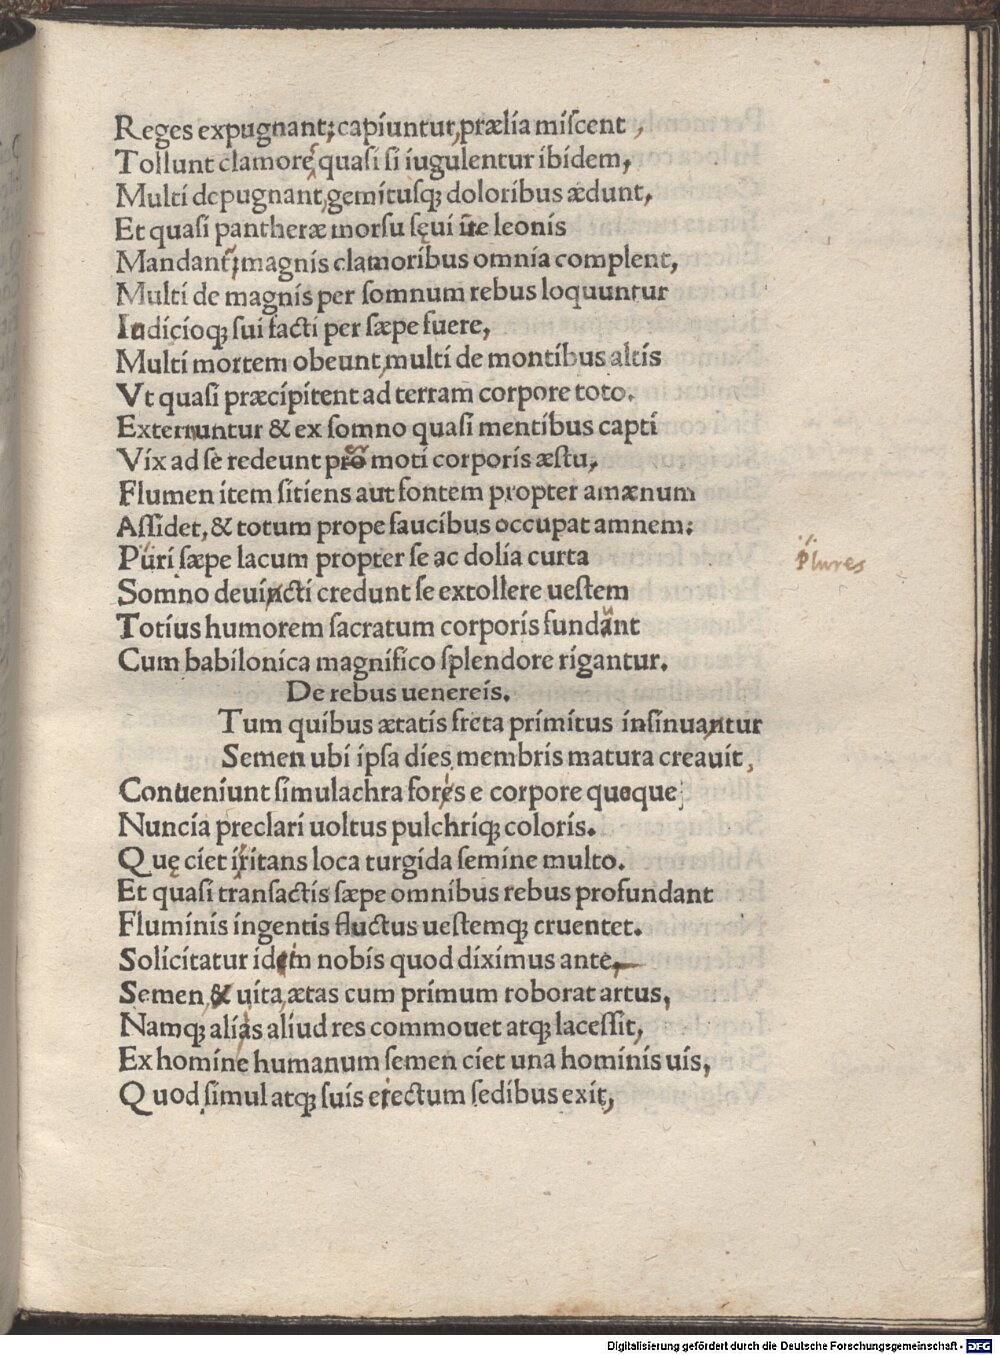 Reges expugnant; capiuntur, prælia miscent,
Tollunt clamorē, quasi si iugulentur ibidem,
Multi depugnant, gemitusqꝫ doloribus ædunt,
Et quasi pantheræ morsu sęui ūe leonis
Mandant; magnis clamoribus omnia complent,
Multi de magnis per somnum rebus loquuntur
Indicioqꝫ sui facti per sæpe fuere,
Multi mortem obeunt, multi de montibus altis
Vt quasi præcipitent ad terram corpore toto.
Exterruntur & ex somno quasi mentibus capti
Vix ad se redeunt pro moti corporis æstu,
Flumen item sitiens aut fontem propter amænum
Assidet, & totum prope faucibus occupat amnem:
Puri sæpe lacum propter se ac dolia curta
Plures
Somno deuincti credunt se extollere uestem
Totius humorem sacratum corporis fundant
Cum babilonica magnifico splendore rigantur.
De rebus uenereis.
Tum quibus ætatis freta primitus insinuantur
Semen ubi ipsa dies membris matura creauit,
Conueniunt simulachra fores e corpore quoque
Nuncia preclari uoltus pulchriqꝫ coloris.
Quę ciet irritans loca turgida semine multo.
Et quasi transactis sæpe omnibus rebus profundant
Fluminis ingentis fluctus uestemqꝫ cruentet.
Solicitatur idem nobis quod diximus ante,
Semen & uita, ætas cum primum roborat artus,
Namqꝫ alias aliud res commouet atqꝫ lacessit,
Ex homine humanum semen ciet una hominis uis,
Quod simul atqꝫ suis eiectum sedibus exit,
Digitalisierung gefördert durch die Deutsche Forschungsgemeinschaft - DFG